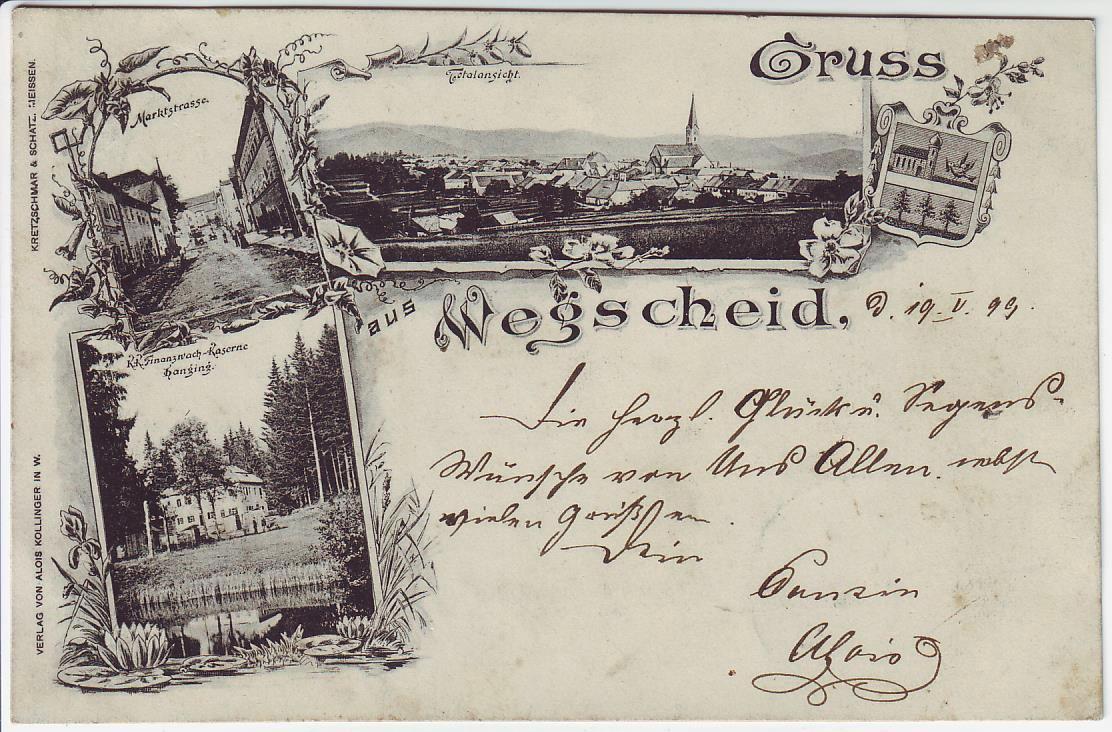 Gruss
aus Wegscheid,
Marktstrasse.
Totalansicht.
K.K. Finanzwach-Kaserne
Hanging.
KRETZSCHMAR & SCHATZ, MEISSEN.
VERLAG VON ALOIS KOLLINGER IN W.
d. 19. V. 99.
Die herzl. Glück u. Segens-
Wünsche von Uns Allen nebst
vielen Grüßen.
Dein
Alois